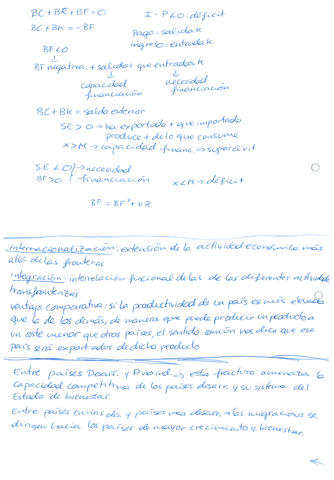 BC + BK + BF = 0 I - P < 0: déficit
BC + BK = - BF Pago = salida k
Ingreso = entrada k
BF < 0
BF negativa: + salidas que entradas k
capacidad necesidad
financiación financiación
BC + BK = saldo exterior
SE > 0 → ha exportado + que importado
produce + de lo que consume
x > M → capacidad financ. → superávit
S.E < 0 → necesidad
BF > 0 financiación x < M → déficit
BF = BF' + VR
Internacionalización: extensión de la actividad económica más
allá de las fronteras
Integración: interrelación funcional de las de las diferentes actividades
transfronterizas
ventaja comparativa: si la productividad de un país es más elevada
que la de los demás, de manera que puede producir un producto a
un coste menor que otros países, el sentido común nos dice que ese
país será exportador de dicho producto
Entre países Desarr. y → esta fractura amenaza la
capacidad competitiva de los países desarr. y su sistema del
Estado de bienestar.
Entre países en vías des. y países más desarr. → las migraciones se
dirigen hacia los países de mayor crecimiento y bienestar.